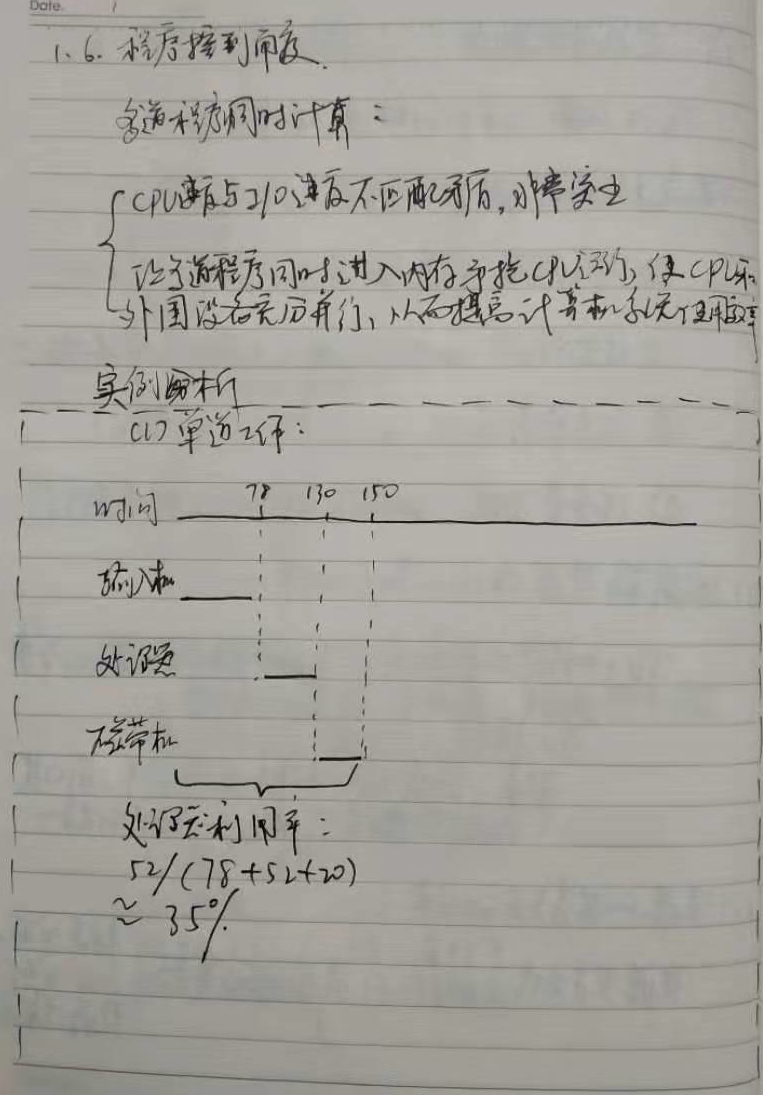 Date.
1.6. 程序接到角度.
多道程序同时计算:
CPU速度与I/O速度不匹配矛盾,非常突出
让多道程序同时进入内存争抢CPU运行,使CPU和
外围设备充分并行,从而提高计算机系统使用效率
实例分析
(1) 单道工作:
时间 78 130 150
输入机
处理器
磁带机
处理器利用率:
52/(78+52+20)
≈ 35%